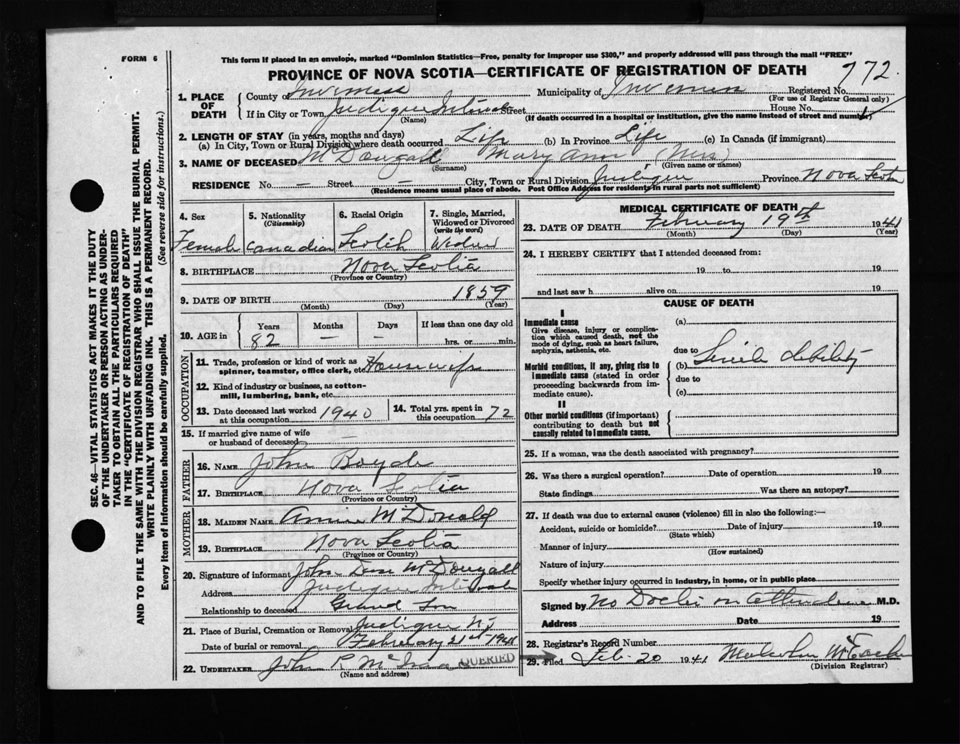 FORM 6
This form if placed in an envelope, marked "Dominion Statistics—Free, penalty for improper use $300," and properly addressed will pass through the mail "FREE"
PROVINCE OF NOVA SCOTIA—CERTIFICATE OF REGISTRATION OF DEATH
772.
1. PLACE OF DEATH
County of Inverness Municipality of Inverness Registered No.
(For use of Registrar General only)
If in City or Town Judique Street House No.
(Name) (If death occurred in a hospital or institution, give the name instead of street and number)
2. LENGTH OF STAY (in years, months and days)
(a) In City, Town or Rural Division where death occurred Life (b) In Province Life (c) In Canada (if immigrant)
3. NAME OF DECEASED McDougall Mary Ann (Mrs)
(Surname) (Given name or names)
RESIDENCE No. — Street — City, Town or Rural Division Judique Province Nova Scotia
(Residence means usual place of abode. Post Office Address for residents in rural parts not sufficient)
4. Sex
Female
5. Nationality
(Citizenship)
Canadian
6. Racial Origin
Scotch
7. Single, Married, Widowed or Divorced
(write the word)
Widow
8. BIRTHPLACE Nova Scotia
(Province or Country)
9. DATE OF BIRTH 1859
(Month) (Day) (Year)
10. AGE in Years Months Days If less than one day old
82 — — hrs. or min.
OCCUPATION
11. Trade, profession or kind of work as spinner, teamster, office clerk, etc. Housewife
12. Kind of industry or business, as cotton-mill, lumbering, bank, etc.
13. Date deceased last worked at this occupation 1940
14. Total yrs. spent in this occupation 72
15. If married give name of wife or husband of deceased —
FATHER
16. NAME John Boyde
17. BIRTHPLACE Nova Scotia
(Province or Country)
MOTHER
18. MAIDEN NAME Annie McDonald
19. BIRTHPLACE Nova Scotia
(Province or Country)
20. Signature of informant John Dan McDougall
Address Judique
Relationship to deceased Grand Son
21. Place of Burial, Cremation or Removal Judique NS
Date of burial or removal February 21st 1941
22. UNDERTAKER John R
(Name and address)
QUERIED
MEDICAL CERTIFICATE OF DEATH
23. DATE OF DEATH February 19th 1941
(Month) (Day) (Year)
24. I HEREBY CERTIFY that I attended deceased from:
19 to 19
and last saw h alive on 19
CAUSE OF DEATH
I
Immediate cause
Give disease, injury or complication which caused death, not the mode of dying, such as heart failure, asphyxia, asthenia, etc.
(a)
due to
Morbid conditions, if any, giving rise to immediate cause (stated in order proceeding backwards from immediate cause).
(b) Senile debility
due to
(c)
II
Other morbid conditions (if important) contributing to death but not causally related to immediate cause.
25. If a woman, was the death associated with pregnancy?
26. Was there a surgical operation? Date of operation 19
State findings Was there an autopsy?
27. If death was due to external causes (violence) fill in also the following:—
Accident, suicide or homicide? Date of injury 19
(State which)
Manner of injury
(How sustained)
Nature of injury
Specify whether injury occurred in industry, in home, or in public place
Signed by No Doctor in attendance M.D.
Address Date 19
28. Registrar's Record Number
29. Filed Feb. 20 1941 Malcolm McEachern
(Division Registrar)
SEC. 46—VITAL STATISTICS ACT MAKES IT THE DUTY
OF THE UNDERTAKER OR PERSON ACTING AS UNDER-
TAKER TO OBTAIN ALL THE PARTICULARS REQUIRED
IN THE "CERTIFICATE OF REGISTRATION OF DEATH"
AND TO FILE THE SAME WITH THE DIVISION REGISTRAR WHO SHALL ISSUE THE BURIAL PERMIT.
WRITE PLAINLY WITH UNFADING INK. THIS IS A PERMANENT RECORD.
Every item of information should be carefully supplied. (See reverse side for instructions.)